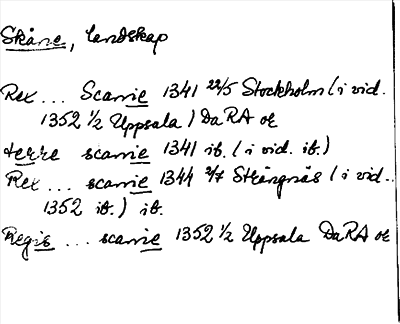 Skåne, landskap
Rex ... Scanie 1341 22/5 Stockholm (i vid.
1352 1/2 Uppsala) DaRA or
terre scanie 1341 ib. (i vid. ib.)
Rex ... scanie 1344 2/7 Strängnäs (i vid..
1352 ib.) ib.
Regis ... scanie 1352 1/2 Uppsala DaRA or